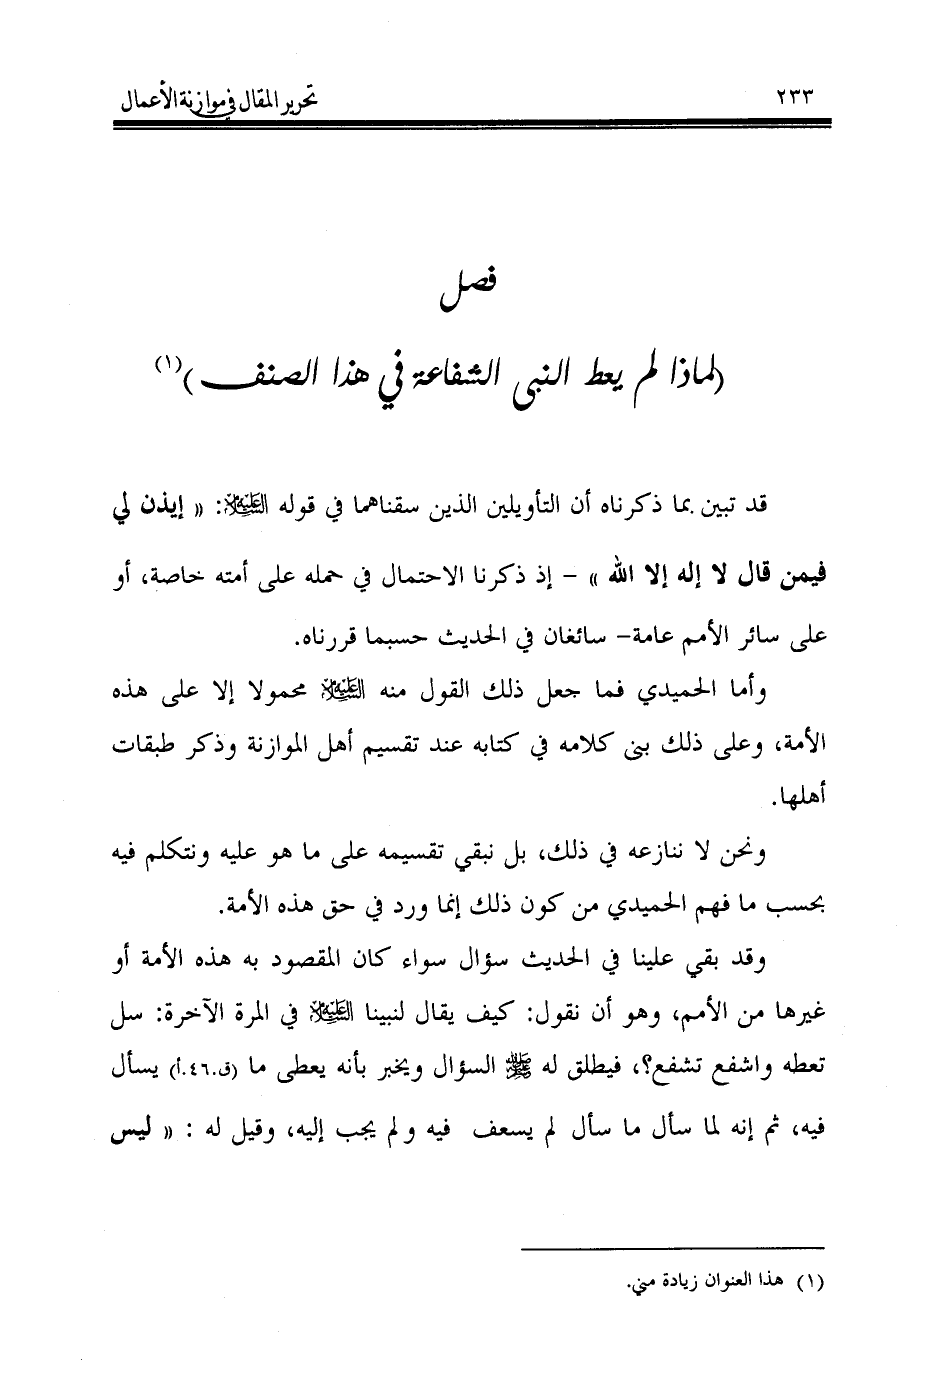 ٢٣٣ تحرير المقال في موازنة الأعمال
فصل
(لماذا لم يعط النبي الشفاعة في هذا الصنف)(١)
قد تبين بما ذكرناه أن التأويلين الذين سقناهما في قوله العَلَيْهِ السَّلَام: « إيذن لي
فيمن قال لا إله إلا الله » – إذ ذكرنا الاحتمال في حمله على أمته خاصة، أو
على سائر الأمم عامة– سائغان في الحديث حسبما قررناه.
وأما الحميدي فما جعل ذلك القول منه العَلَيْهِ السَّلَام محمولا إلا على هذه
الأمة، وعلى ذلك بنى كلامه في كتابه عند تقسيم أهل الموازنة وذكر طبقات
أهلها.
ونحن لا ننازعه في ذلك، بل نبقي تقسيمه على ما هو عليه ونتكلم فيه
بحسب ما فهم الحميدي من كون ذلك إنما ورد في حق هذه الأمة.
وقد بقي علينا في الحديث سؤال سواء كان المقصود به هذه الأمة أو
غيرها من الأمم، وهو أن نقول: كيف يقال لنبينا العَلَيْهِ السَّلَام في المرة الآخرة: سل
تعطه واشفع تشفع؟، فيطلق له ﷺ السؤال ويخبر بأنه يعطى ما (ق.٤٦.أ) يسأل
فيه، ثم إنه لما سأل ما سأل لم يسعف فيه ولم يجب إليه، وقيل له : « ليس
(١) هذا العنوان زيادة مني.